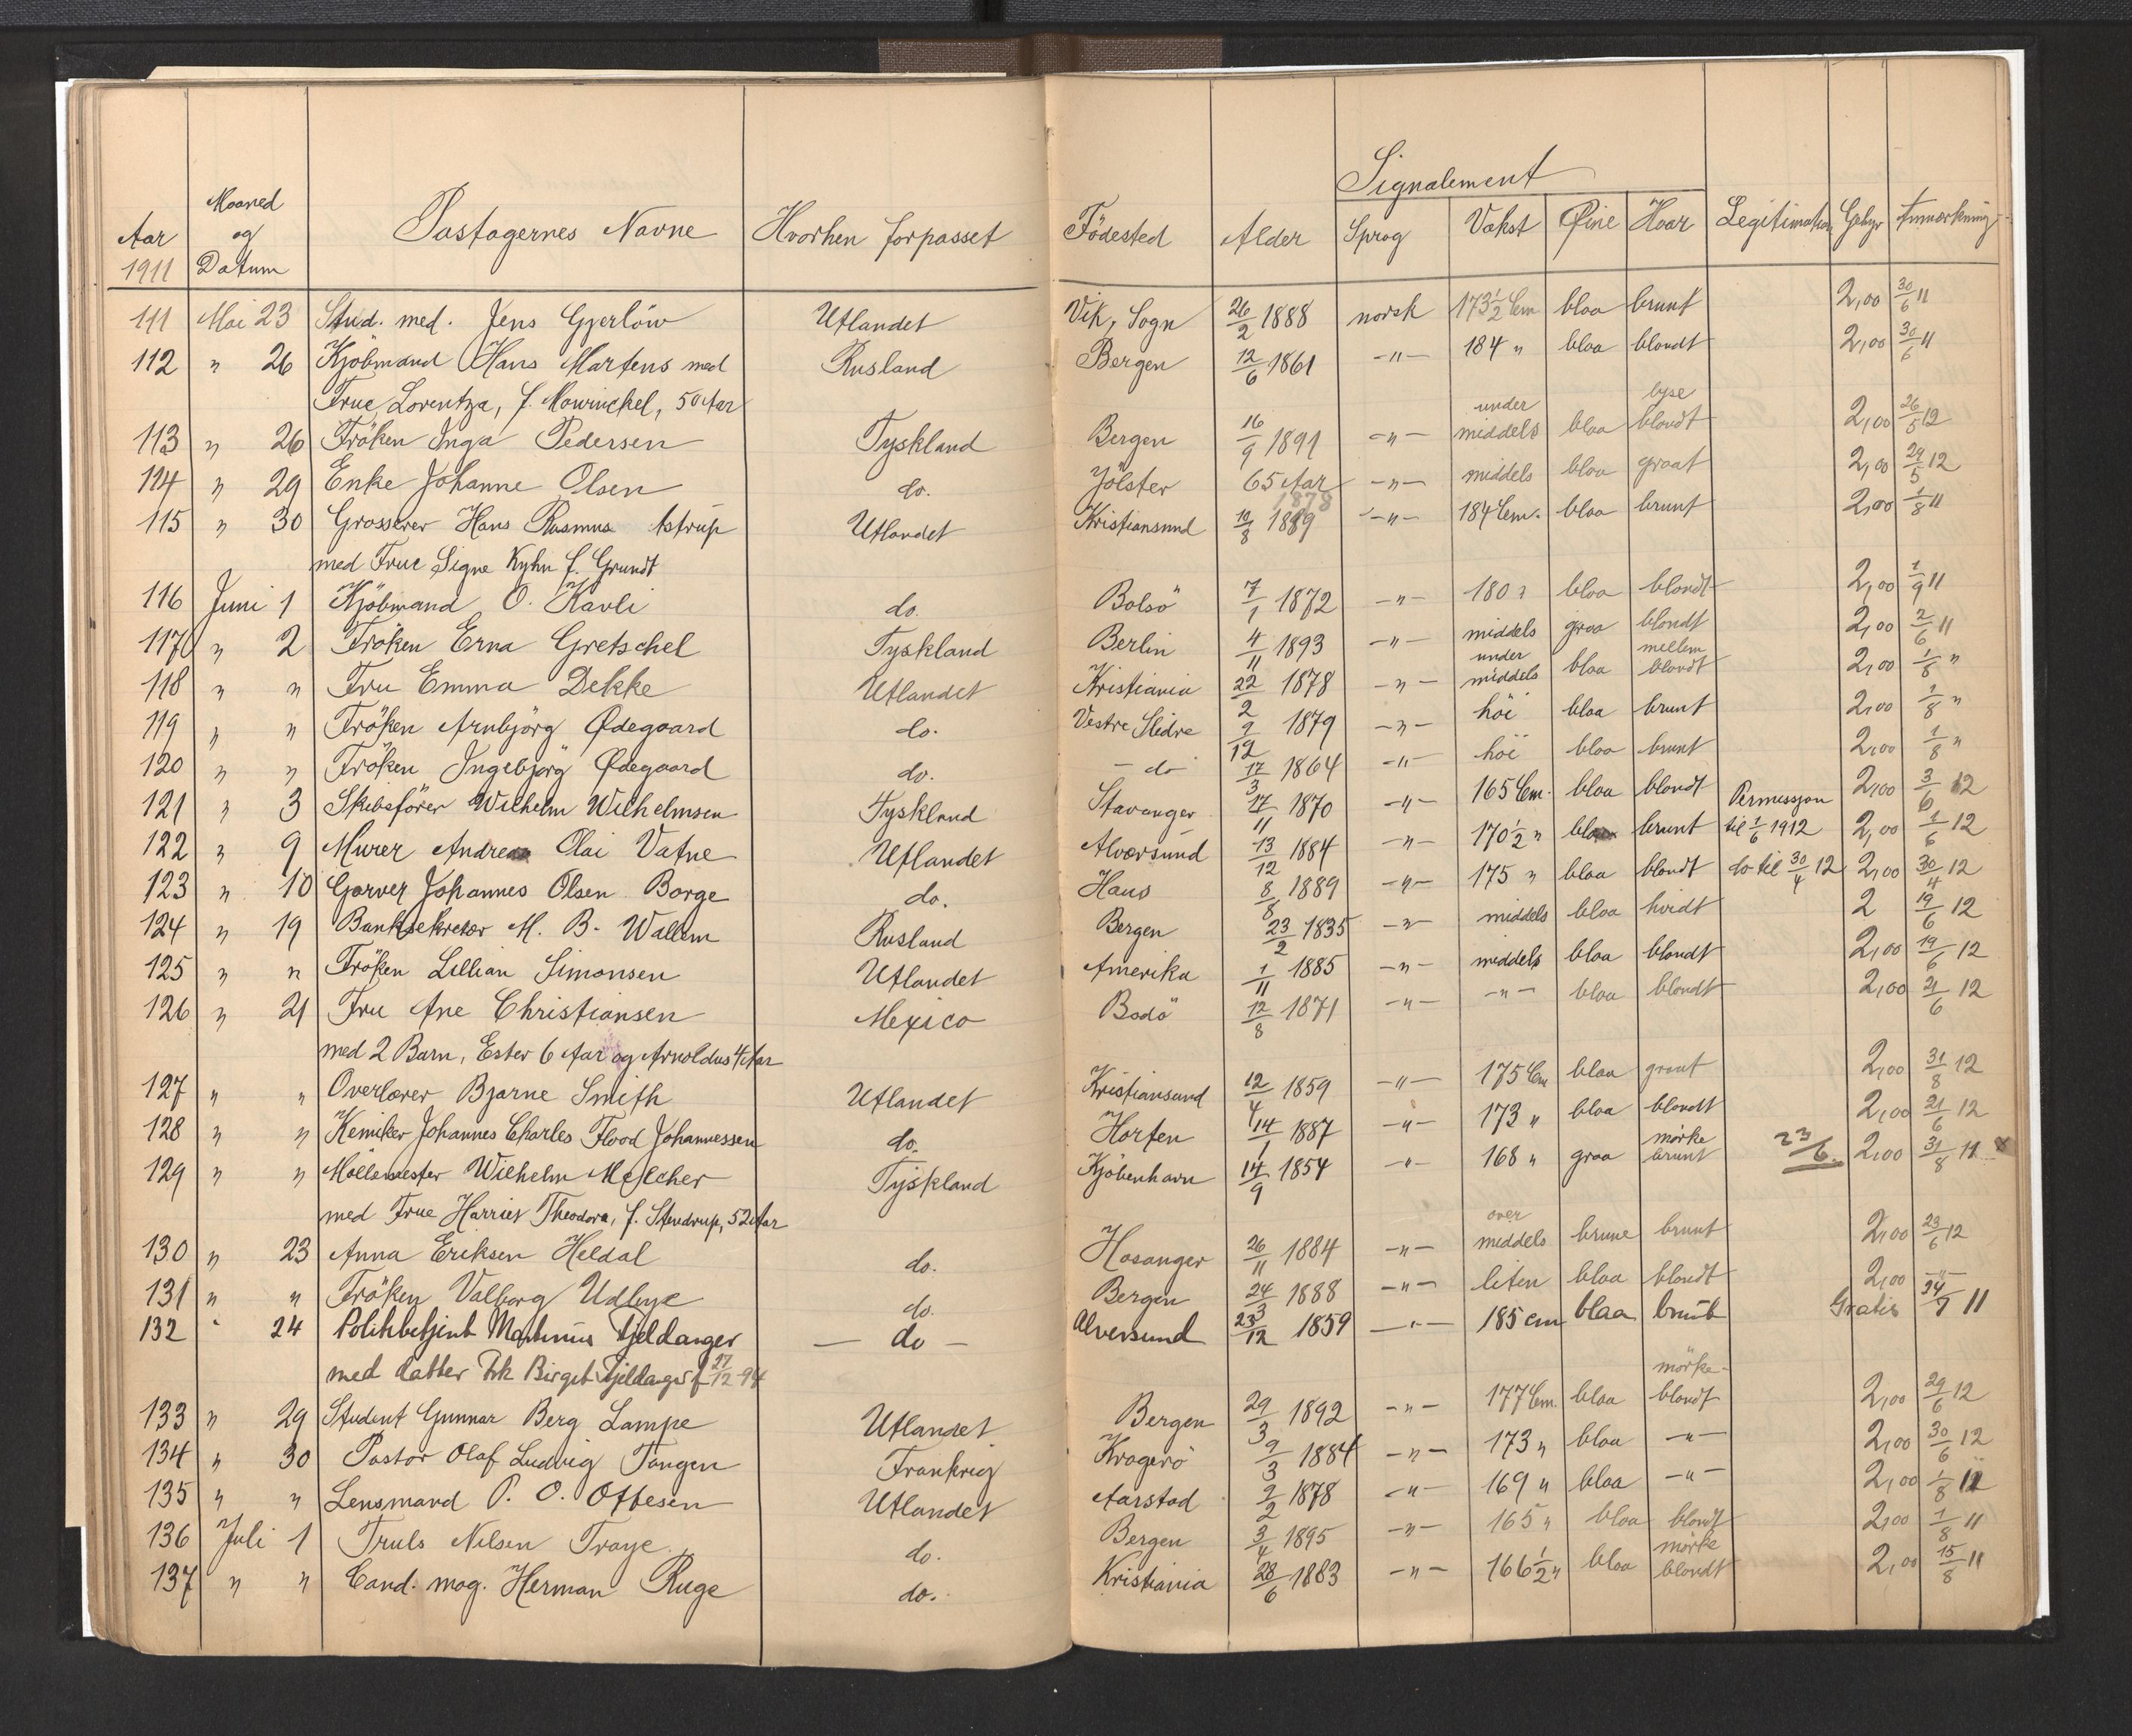 Signalement
Aar 1911 Maaned og Datum Pastagernes Navne Hvorhen forpasset Födested Alder Sprog Vakst Øine Haar Legitimation Gebyr Anmærkning
111 Mai 23 Stud. med. Jens Gjerlöw Utlandet Vik, Sogn 26/2 1888 norsk 173 1/2 Cm blaa brunt 2,00 30/6 11
112 " 26 Kjöbmand Hans Martens med Rusland Bergen 12/6 1861 -"- 184 " blaa blondt 2,00 30/6 11
Frue, Lorentza, f. Mowinckel, 50 Aar
113 " 26 Fröken Inga Pedersen Tyskland Bergen 16/9 1891 -"- under middels blaa lyse blondt 2,00 26/5 12
114 " 29 Enke Johanne Olsen do. Jölster 65 Aar -"- middels blaa graat 2,00 29/5 12
115 " 30 Grosserer Hans Rasmus Astrup Utlandet Kristiansund 10/8 1878 -"- 184 Cm. blaa brunt 2,00 1/8 11
med Frue Signe Kyhn f. Grundt
116 Juni 1 Kjöbmand O. Kavli do. Bolsö 7/1 1872 -"- 180 " blaa blondt 2,00 1/9 11
117 " 2 Fröken Erna Gretschel Tyskland Berlin 4/11 1893 -"- middels graa blondt 2,00 2/6 11
118 " " Fru Emma Dekke Utlandet Kristiania 22/2 1878 -"- under middels blaa mellem blondt 2,00 1/8 "
119 " " Fröken Arnbjörg Ødegaard do. Vestre Slidre 9/12 1879 -"- höi blaa brunt 2,00 1/8 "
120 " " Fröken Ingebjörg Ødegaard do. - do 17/3 1864 -"- höi blaa brunt 2,00 1/8 "
121 " 3 Skibsförer Wilhelm Wilhelmsen Tyskland Stavanger 17/11 1870 -"- 165 Cm. blaa blondt 2,00 3/6 12
122 " 9 Murer Andreas Olai Vatne Utlandet Alversund 13/12 1884 -"- 170 1/2 " blaa brunt Permissjon til 1/6 1912 2,00 1/6 12
123 " 10 Garver Johannes Olsen Borge do. Haus 8/8 1889 -"- 175 " blaa blondt do til 30/4 12 2,00 30/4 12
124 " 19 Banksekretær M. B. Wallem Rusland Bergen 23/2 1835 -"- middels blaa hvidt 2 19/6 12
125 " " Fröken Lillian Simonsen Utlandet Amerika 1/11 1885 -"- middels blaa blondt 2,00 19/6 12
126 " 21 Fru Ane Christiansen Mexico Bodö 12/8 1871 -"- -"- blaa blondt 2,00 21/6 12
med 2 Barn, Ester 6 Aar og Arnoldus 4 Aar
127 " " Overlærer Bjarne Smith Utlandet Kristiansund 12/4 1859 -"- 175 Cm blaa graat 2,00 31/8 12
128 " " Kemiker Johannes Charles Flood Johannessen do. Horten 14/1 1887 -"- 173 " blaa blondt 2,00 21/6 12
129 " " Möllemester Wilhelm Melcher Tyskland Kjöbenhavn 14/9 1854 -"- 168 " graa mörke brunt 23/6. 2,00 31/8 11 x
med Frue Harriet Theodora, f. Stendrup, 52 Aar
130 " 23 Anna Eriksen Heldal do. Hosanger 26/11 1884 -"- over middels brune brunt 2,00 23/6 12
131 " " Fröken Valborg Udbye do. Bergen 24/3 1888 -"- liten blaa blondt 2,00 -"-
132 " 24 Politibetjent Martinus Fjeldanger - do - Alversund 23/12 1859 -"- 185 cm blaa brunt Gratis 24/7 11
med datter Frk Birgit Fjeldanger f 27/12-94
133 " 29 Student Gunnar Berg Lampe Utlandet Bergen 29/3 1892 -"- 177 Cm. blaa mörke- blondt 2,00 29/6 12
134 " 30 Pastor Olaf Ludvig Tangen Frankrig Kragerö 9/3 1884 -"- 173 " blaa -"- 2,00 30/6 12
135 " " Lensmand P. O. Ottesen Utlandet Aarstad 2/2 1878 -"- 169 " blaa -"- 2,00 1/8 11
136 Juli 1 Truls Nilsen Traye do. Bergen 3/4 1895 -"- 165 " blaa blondt 2,00 1/8 11
137 " " Cand. mag. Herman Ruge do. Kristiania 28/6 1883 -"- 166 1/2 " blaa mörke blondt 2,00 15/8 11